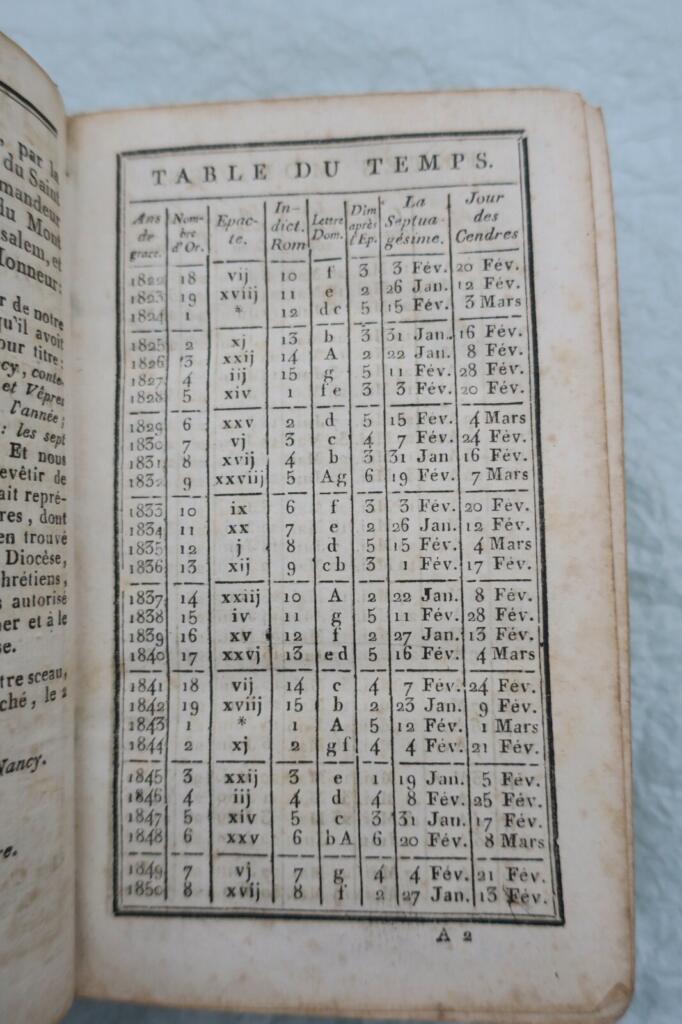 , par la
du Saint
mandeur
du Mont
salem, et
Honneur;
r de notre
qu'il avoit
our titre:
cy, conte-
et Vêpres
l'année;
: les sept
Et nous
evêtir de
ait repré-
res, dont
en trouvé
Diocèse,
hrétiens,
s autorisé
er et à le
se.
tre sceau,
ché, le 2
Nancy.
re.
TABLE DU TEMPS.
Ans de grace. Nom- bre d'Or. Epac- te. In- dict. Rom Lettre Dom. Dim après l'Ep. La Septua- gésime. Jour des Cendres
1822 18 vij 10 f 3 3 Fév. 20 Fév.
1823 19 xviij 11 e 2 26 Jan. 12 Fév.
1824 1 * 12 dc 5 15 Fév. 3 Mars
1825 2 xj 13 b 3 31 Jan. 16 Fév.
1826 3 xxij 14 A 2 22 Jan. 8 Fév.
1827 4 iij 15 g 5 11 Fév. 28 Fév.
1828 5 xiv 1 fe 3 3 Fév. 20 Fév.
1829 6 xxv 2 d 5 15 Fév. 4 Mars
1830 7 vj 3 c 4 7 Fév. 24 Fév.
1831 8 xvij 4 b 3 31 Jan 16 Fév.
1832 9 xxviij 5 Ag 6 19 Fév. 7 Mars
1833 10 ix 6 f 3 3 Fév. 20 Fév.
1834 11 xx 7 e 2 26 Jan. 12 Fév.
1835 12 j 8 d 5 15 Fév. 4 Mars
1836 13 xij 9 cb 3 1 Fév. 17 Fév.
1837 14 xxiij 10 A 2 22 Jan. 8 Fév.
1838 15 iv 11 g 5 11 Fév. 28 Fév.
1839 16 xv 12 f 2 27 Jan. 13 Fév.
1840 17 xxvj 13 ed 5 16 Fév. 4 Mars
1841 18 vij 14 c 4 7 Fév. 24 Fév.
1842 19 xviij 15 b 2 23 Jan. 9 Fév.
1843 1 * 1 A 5 12 Fév. 1 Mars
1844 2 xj 2 gf 4 4 Fév. 21 Fév.
1845 3 xxij 3 e 1 19 Jan. 5 Fév.
1846 4 iij 4 d 4 8 Fév. 25 Fév.
1847 5 xiv 5 c 3 31 Jan. 17 Fév.
1848 6 xxv 6 bA 6 20 Fév. 8 Mars
1849 7 vj 7 g 4 4 Fév. 21 Fév.
1850 8 xvij 8 f 2 27 Jan. 13 Fév.
A 2